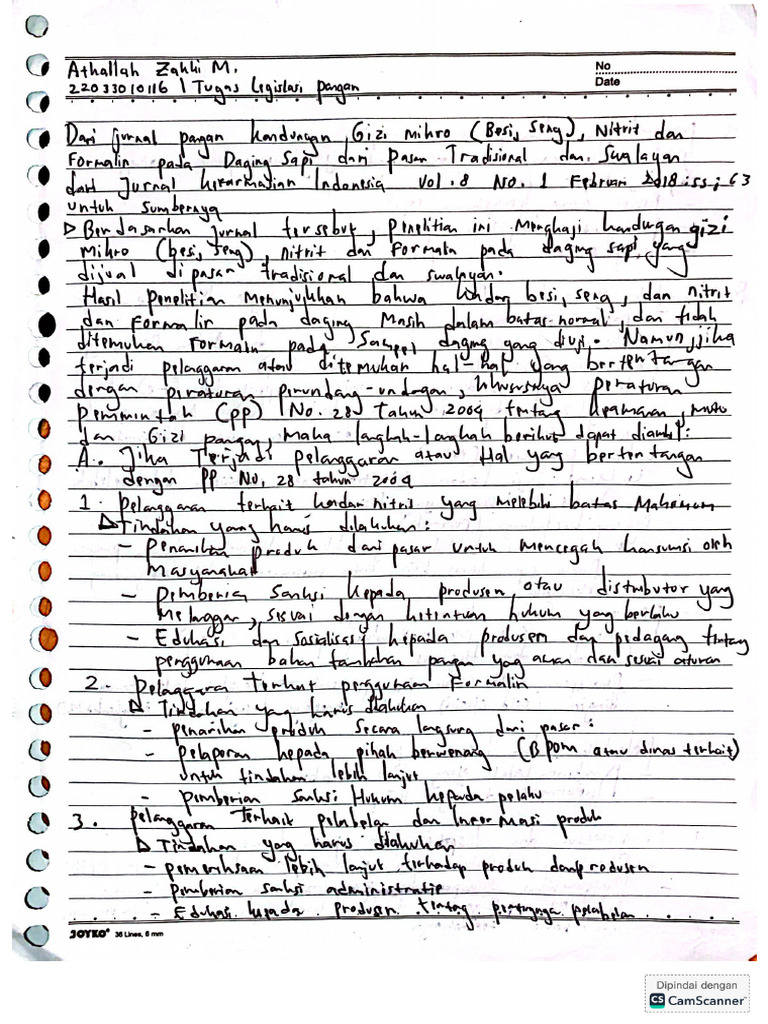 Athallah Zahhi M.
No
22033010116 / Tugas Legislasi pangan
Date
Dari jurnal pangan kandungan Gizi Mikro (Besi, Seng), Nitrit dan
Formalin pada Daging Sapi dari Pasar Tradisional dan Swalayan
dari Jurnal Indonesia Vol. 8 No. 1 Februari 2018: 55; 63
untuk sumbernya
Berdasarkan jurnal tersebut, penelitian ini Mengkaji kandungan gizi
Mikro (besi, seng), nitrit dan Formalin pada daging sapi yang
dijual di pasar tradisional dan swalayan.
Hasil penelitian Menunjukkan bahwa besi, seng, dan nitrit
dan Formalin pada daging Masih dalam batas normal, dan tidak
ditemukan Formalin pada Sampel daging yang diuji. Namun, jika
terjadi pelanggaran atau ditemukan hal-hal yang bertentangan
dengan peraturan perundang-undangan, khususnya peraturan
pemerintah (PP) No. 28 Tahun 2004 tentang keamanan, mutu
dan Gizi pangan, Maka langkah-langkah berikut dapat diambil:
A. Jika Terjadi pelanggaran atau Hal yang bertentangan
dengan PP No. 28 tahun 2004
1. Pelanggaran terkait yang melebihi batas Maksimum
Tindakan yang harus dilakukan:
- Penarikan produk dari pasar untuk Mencegah konsumsi oleh
Masyarakat
- Pemberian Sanksi kepada produsen atau distributor yang
Melanggar, sesuai dengan ketentuan hukum yang berlaku
- Edukasi dan sosialisasi kepada produsen dan pedagang tentang
penggunaan bahan tambahan pangan yang aman dan sesuai aturan
2. Pelanggaran Terkait penggunaan Formalin
Tindakan yang harus dilakukan
- penarikan produk secara langsung dari pasar:
- pelaporan kepada pihak berwenang (BPOM atau dinas terkait)
untuk tindakan lebih lanjut
- pemberian sanksi Hukum kepada pelaku
3. pelanggaran Terkait pelabelan dan Informasi produk
Tindakan yang harus dilakukan
- pemeriksaan lebih lanjut terhadap produk dan produsen
- pemberian sanksi administratif
- Edukasi kepada produsen tentang pentingnya pelabelan
JOYKO 36 Lines, 6 mm
Dipindai dengan
CS CamScanner